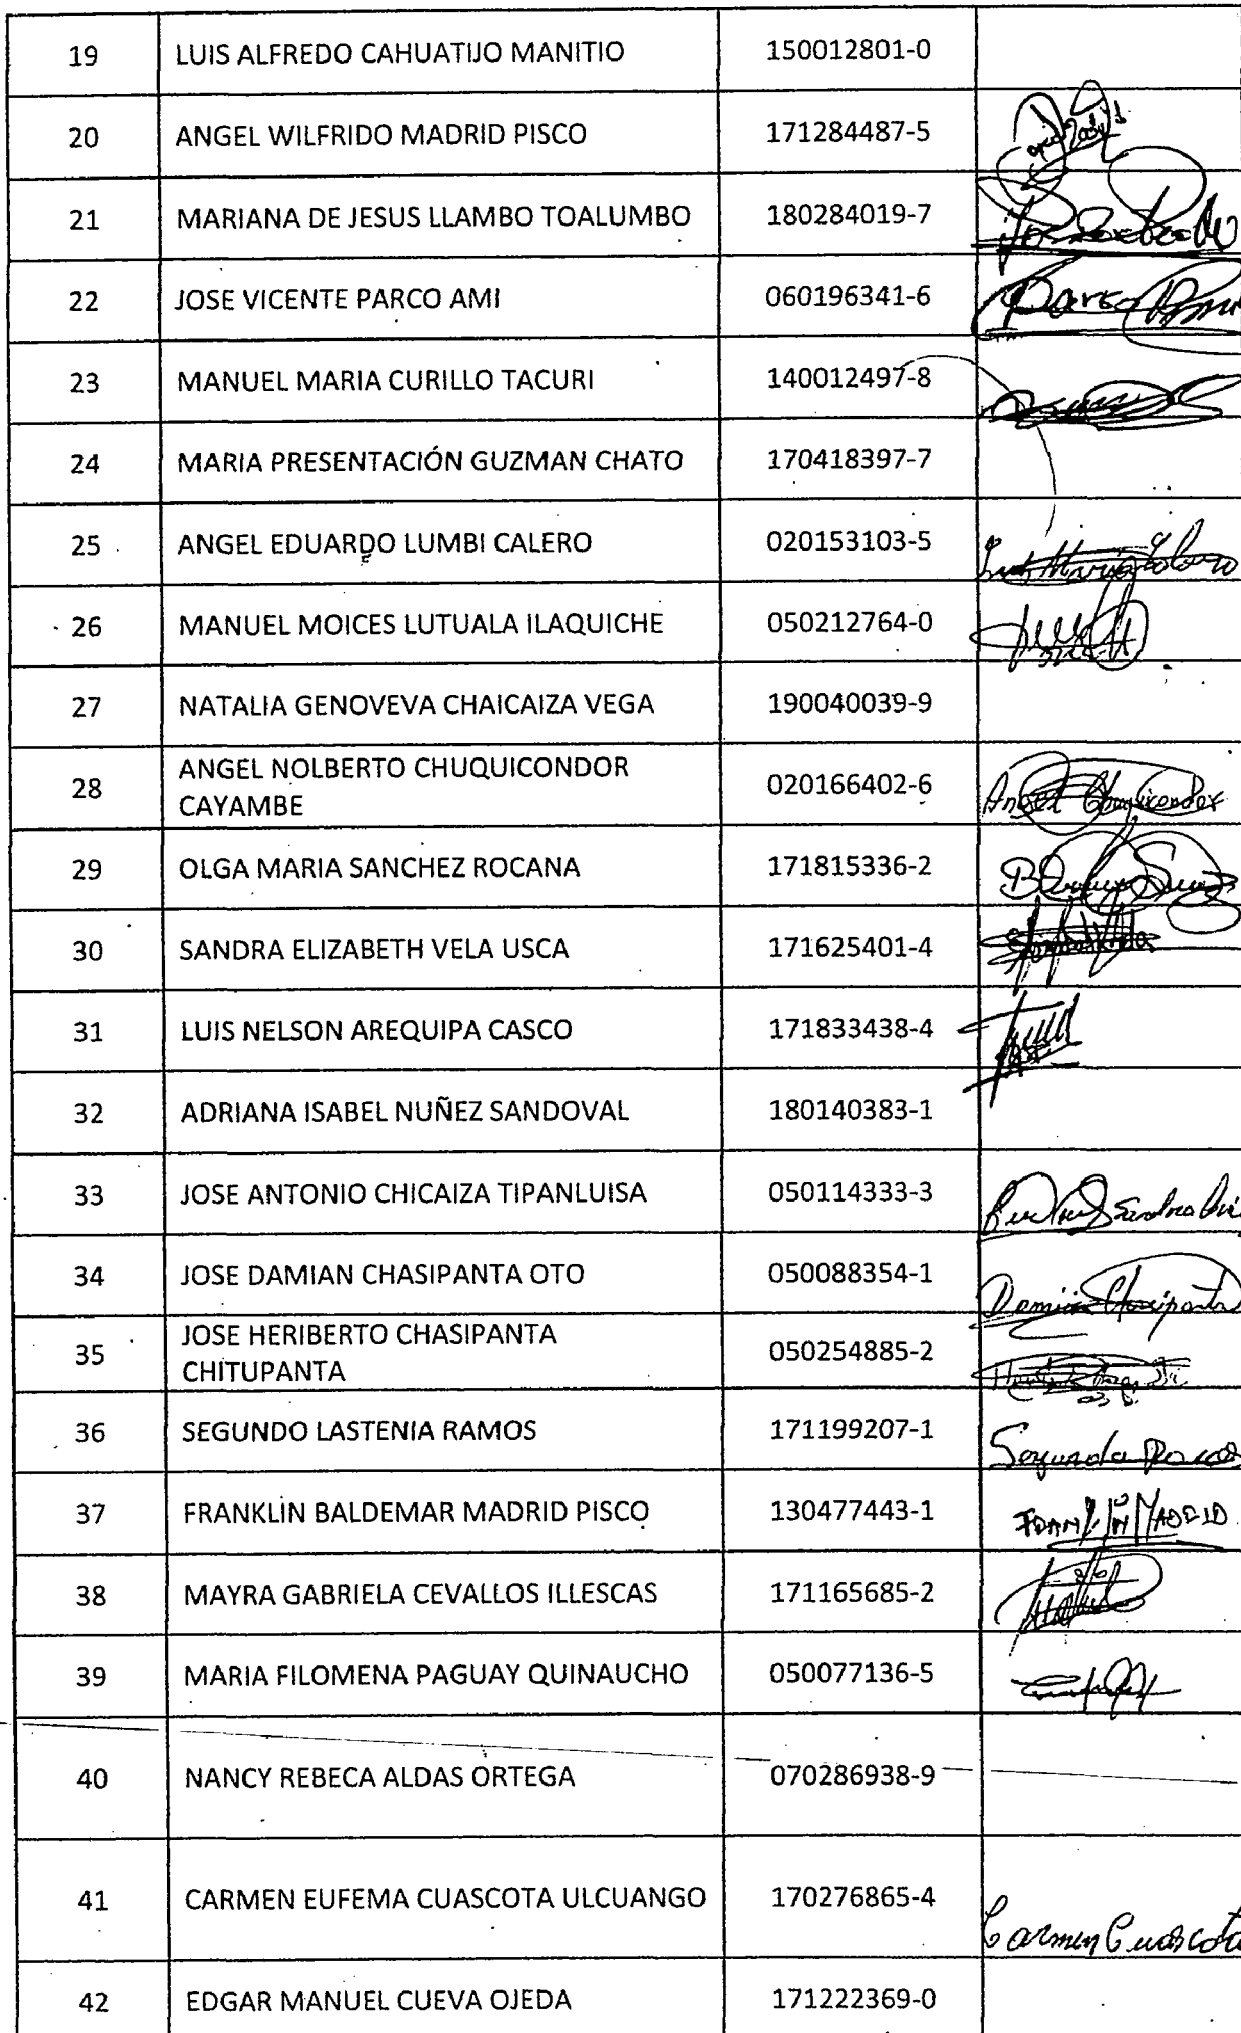 19 LUIS ALFREDO CAHUATIJO MANITIO 150012801-0
20 ANGEL WILFRIDO MADRID PISCO 171284487-5
21 MARIANA DE JESUS LLAMBO TOALUMBO 180284019-7
22 JOSE VICENTE PARCO AMI 060196341-6
23 MANUEL MARIA CURILLO TACURI 140012497-8
24 MARIA PRESENTACIÓN GUZMAN CHATO 170418397-7
25 ANGEL EDUARDO LUMBI CALERO 020153103-5
26 MANUEL MOICES LUTUALA ILAQUICHE 050212764-0
27 NATALIA GENOVEVA CHAICAIZA VEGA 190040039-9
28 ANGEL NOLBERTO CHUQUICONDOR
CAYAMBE 020166402-6 Angel Chuquicondor
29 OLGA MARIA SANCHEZ ROCANA 171815336-2
30 SANDRA ELIZABETH VELA USCA 171625401-4
31 LUIS NELSON AREQUIPA CASCO 171833438-4
32 ADRIANA ISABEL NUÑEZ SANDOVAL 180140383-1
33 JOSE ANTONIO CHICAIZA TIPANLUISA 050114333-3
34 JOSE DAMIAN CHASIPANTA OTO 050088354-1 Damian Chasipanta
35 JOSE HERIBERTO CHASIPANTA
CHITUPANTA 050254885-2
36 SEGUNDO LASTENIA RAMOS 171199207-1
37 FRANKLIN BALDEMAR MADRID PISCO 130477443-1 FRANKLIN MADRID
38 MAYRA GABRIELA CEVALLOS ILLESCAS 171165685-2
39 MARIA FILOMENA PAGUAY QUINAUCHO 050077136-5
40 NANCY REBECA ALDAS ORTEGA 070286938-9
41 CARMEN EUFEMA CUASCOTA ULCUANGO 170276865-4 Carmen Cuascota
42 EDGAR MANUEL CUEVA OJEDA 171222369-0